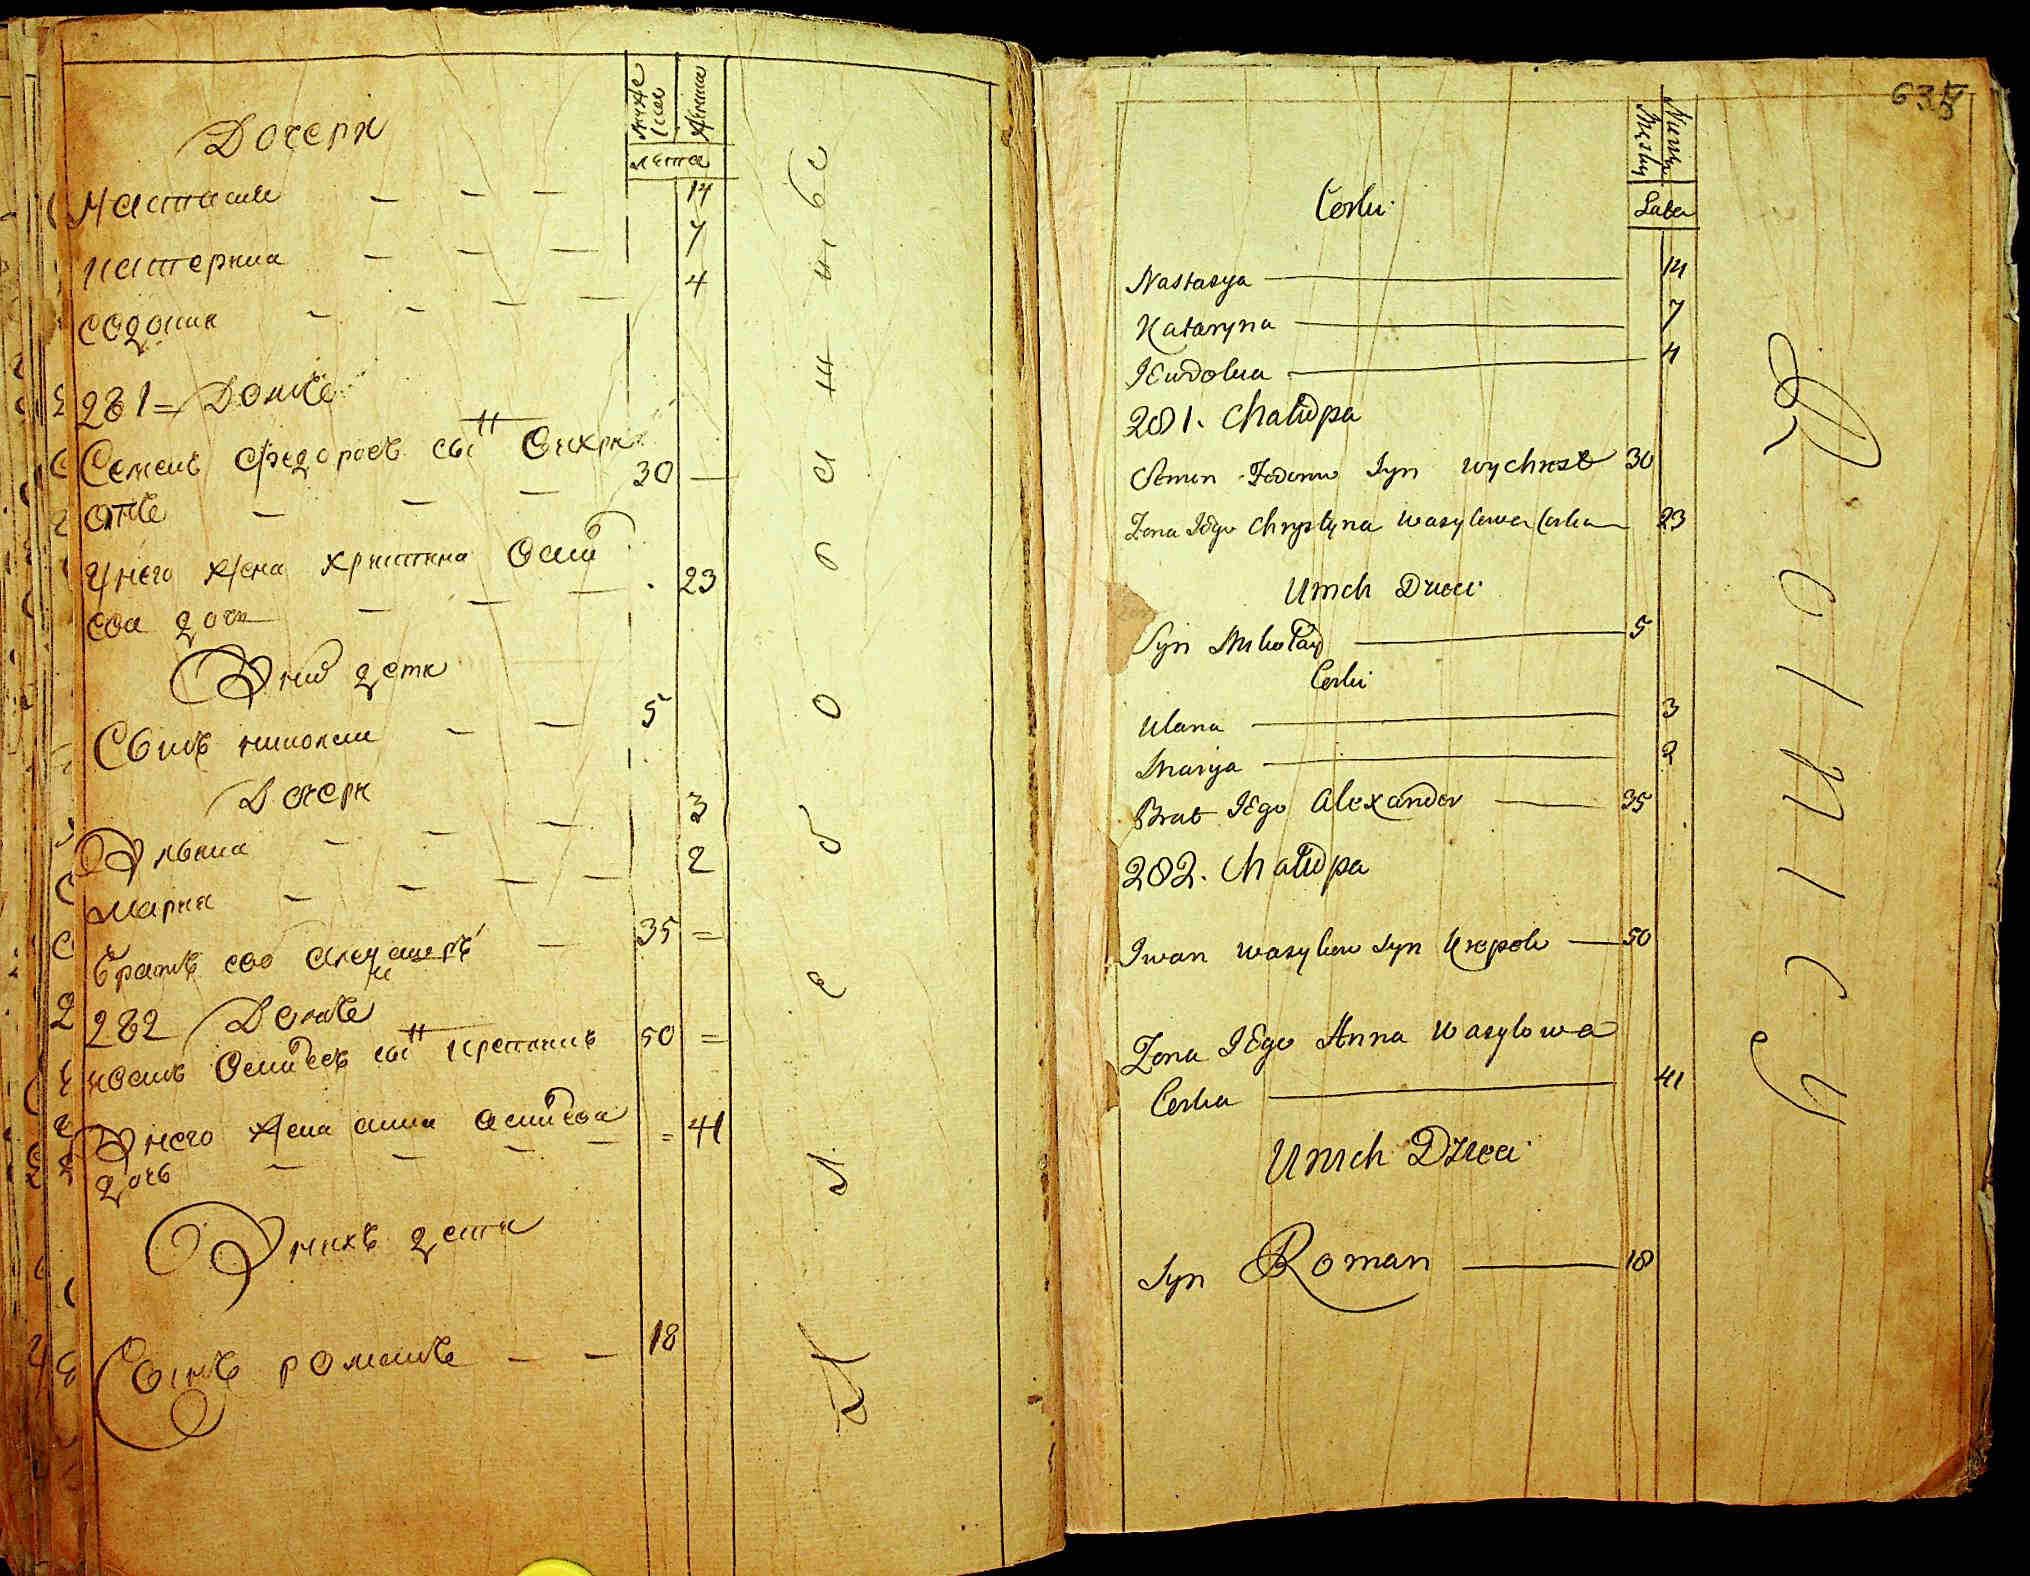 Дочери
мужеска
женска
лета
Настасия — — — 14
Катерина — — — 7
Евдокия — — — 4
281 = Домъ
Семенъ Федоровъ сынъ Выхри
стъ — — — 30 —
У него жена Христина Васи
ева дочь — — — 23
У них дети
Сынъ Николай — — 5
Дочери
Ульяна — — — 3
Мария — — — — 2
братъ ево Александеръ — 35 =
282 Домъ
Иванъ Васильевъ сынъ 50 =
У него жена Анна Васильева = 41
дочь — — — —
У нихъ дети
Сынъ романъ — — 18
635
Męsky
Niewy
Lata
Corki
Nastasya — 14
Kataryna — 7
IEwdokia — 4
281. Chałupa
Semen Fedorow Syn wychrest 30
Zona IEgo Chrystyna Wasylewa Corka — 23
Unich Dzieci
Syn Mikołay — 5
Corki
Ulana — 3
Marya — 2
Brat IEgo Alexander — 35
282. Chałupa
Iwan Wasylew Syn — 50
Zona IEgo Anna Wasylowa
Corka — 41
Unich Dzieci
Syn Roman — 18
Rolnicy